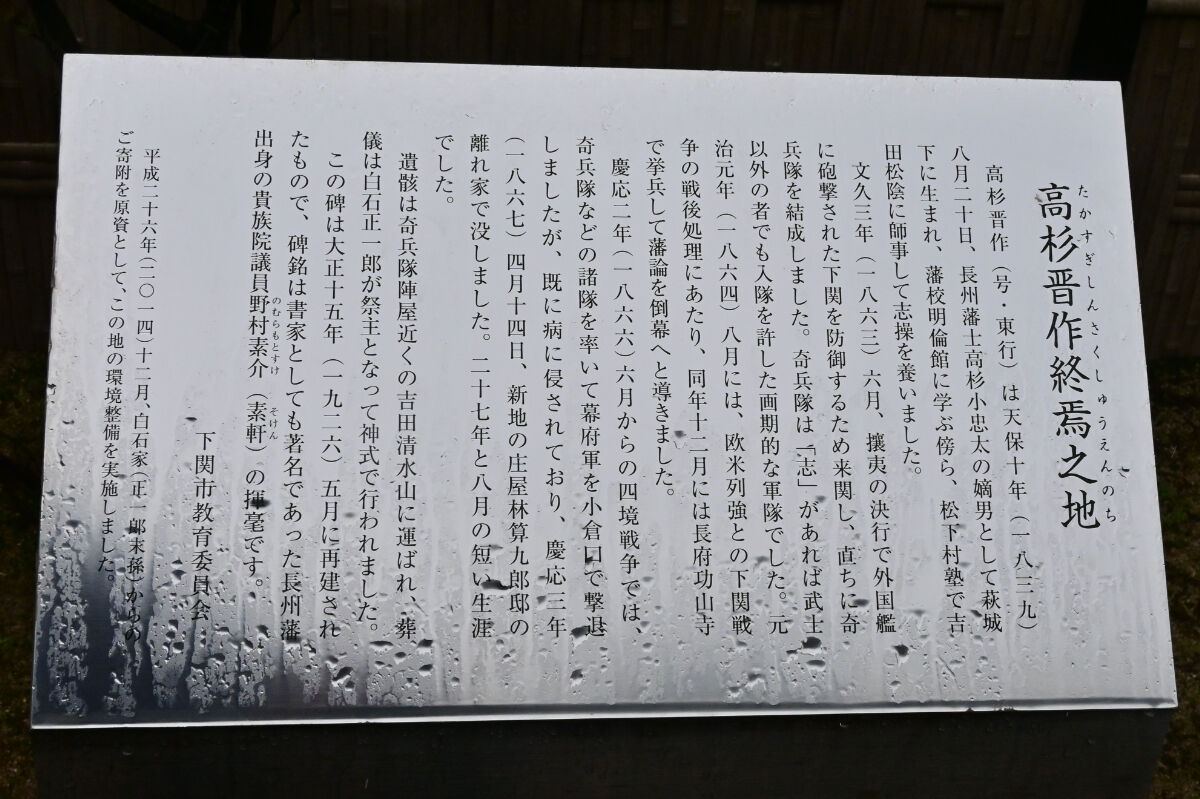 たかすぎしんさくしゅうえんのち
高杉晋作終焉之地
高杉晋作（号・東行）は天保十年（一八三九）
八月二十日、長州藩士高杉小忠太の嫡男として萩城
下に生まれ、藩校明倫館に学ぶ傍ら、松下村塾で吉
田松陰に師事して志操を養いました。
文久三年（一八六三）六月、攘夷の決行で外国艦
に砲撃された下関を防御するため来関し、直ちに奇
兵隊を結成しました。奇兵隊は「志」があれば武士
以外の者でも入隊を許した画期的な軍隊でした。元
治元年（一八六四）八月には、欧米列強との下関戦
争の戦後処理にあたり、同年十二月には長府功山寺
で挙兵して藩論を倒幕へと導きました。
慶応二年（一八六六）六月からの四境戦争では、
奇兵隊などの諸隊を率いて幕府軍を小倉口で撃退
しましたが、既に病に侵されており、慶応三年
（一八六七）四月十四日、新地の庄屋林算九郎邸の
離れ家で没しました。二十七年と八月の短い生涯
でした。
遺骸は奇兵隊陣屋近くの吉田清水山に運ばれ、葬
儀は白石正一郎が祭主となって神式で行われました。
この碑は大正十五年（一九二六）五月に再建され
たもので、碑銘は書家としても著名であった長州藩
のむらもとすけ そけん
出身の貴族院議員野村素介（素軒）の揮毫です。
下関市教育委員会
平成二十六年（二〇一四）十二月、白石家（正一郎末孫）からの
ご寄附を原資として、この地の環境整備を実施しました。